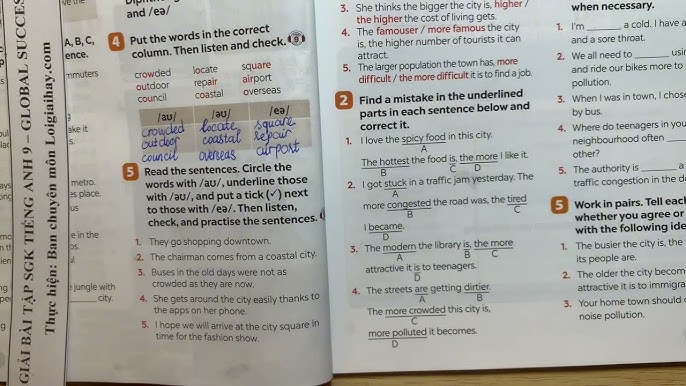 GIẢI BÀI TẬP SGK TIẾNG ANH 9 – GLOBAL SUCCESS
Thực hiện: Ban chuyên môn Loigiaihay.com
A, B, C,
ence.
mmuters
ake it
metro.
es place.
us.
e in the
os.
e jungle with
city.
and /eə/
4 Put the words in the correct
column. Then listen and check.
crowded locate square
outdoor repair airport
council coastal overseas
/aʊ/ /əʊ/ /eə/
crowded locate square
outdoor coastal repair
council overseas airport
5 Read the sentences. Circle the
words with /aʊ/, underline those
with /əʊ/, and put a tick (✓) next
to those with /eə/. Then listen,
check, and practise the sentences.
1. They go shopping downtown.
2. The chairman comes from a coastal city.
3. Buses in the old days were not as
crowded as they are now.
4. She gets around the city easily thanks to
the apps on her phone.
5. I hope we will arrive at the city square in
time for the fashion show.
3. She thinks the bigger the city is, higher /
the higher the cost of living gets.
4. The famouser / more famous the city
is, the higher number of tourists it can
attract.
5. The larger population the town has, more
difficult / the more difficult it is to find a job.
2 Find a mistake in the underlined
parts in each sentence below and
correct it.
1. I love the spicy food in this city.
A
The hottest the food is, the more I like it.
B C D
2. I got stuck in a traffic jam yesterday. The
A
more congested the road was, the tired
B C
I became.
D
3. The modern the library is, the more
A B C
attractive it is to teenagers.
D
4. The streets are getting dirtier.
A B
The more crowded this city is,
C
more polluted it becomes.
D
when necessary.
1. I'm ____ a cold. I have a
and a sore throat.
2. We all need to ____ usin
and ride our bikes more to
pollution.
3. When I was in town, I chos
by bus.
4. Where do teenagers in you
neighbourhood often ____
other?
5. The authority is ____ a
traffic congestion in the d
5 Work in pairs. Tell eac
whether you agree or
with the following ide
1. The busier the city is, the
its people are.
2. The older the city becom
attractive it is to immigra
3. Your home town should
noise pollution.